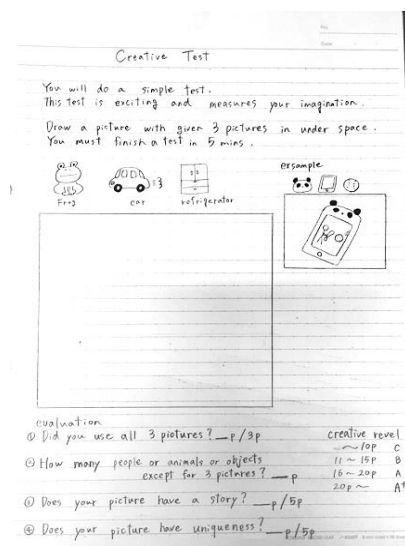 No.
Date
Creative Test
You will do a simple test.
This test is exciting and measures your imagination.
Draw a picture with given 3 pictures in under space.
You must finish a test in 5 mins.
exsample
Frog
car
refrigerator
evaluation
① Did you use all 3 piotures? _p/3p
② How many people or animals or objects
except for 3 pictures? _p
③ Does your picture have a story? _p/5p
④ Does your picture have uniqueness? _p/5p
creative revel
~10p C
11~15p B
16~20p A
20p~ A+